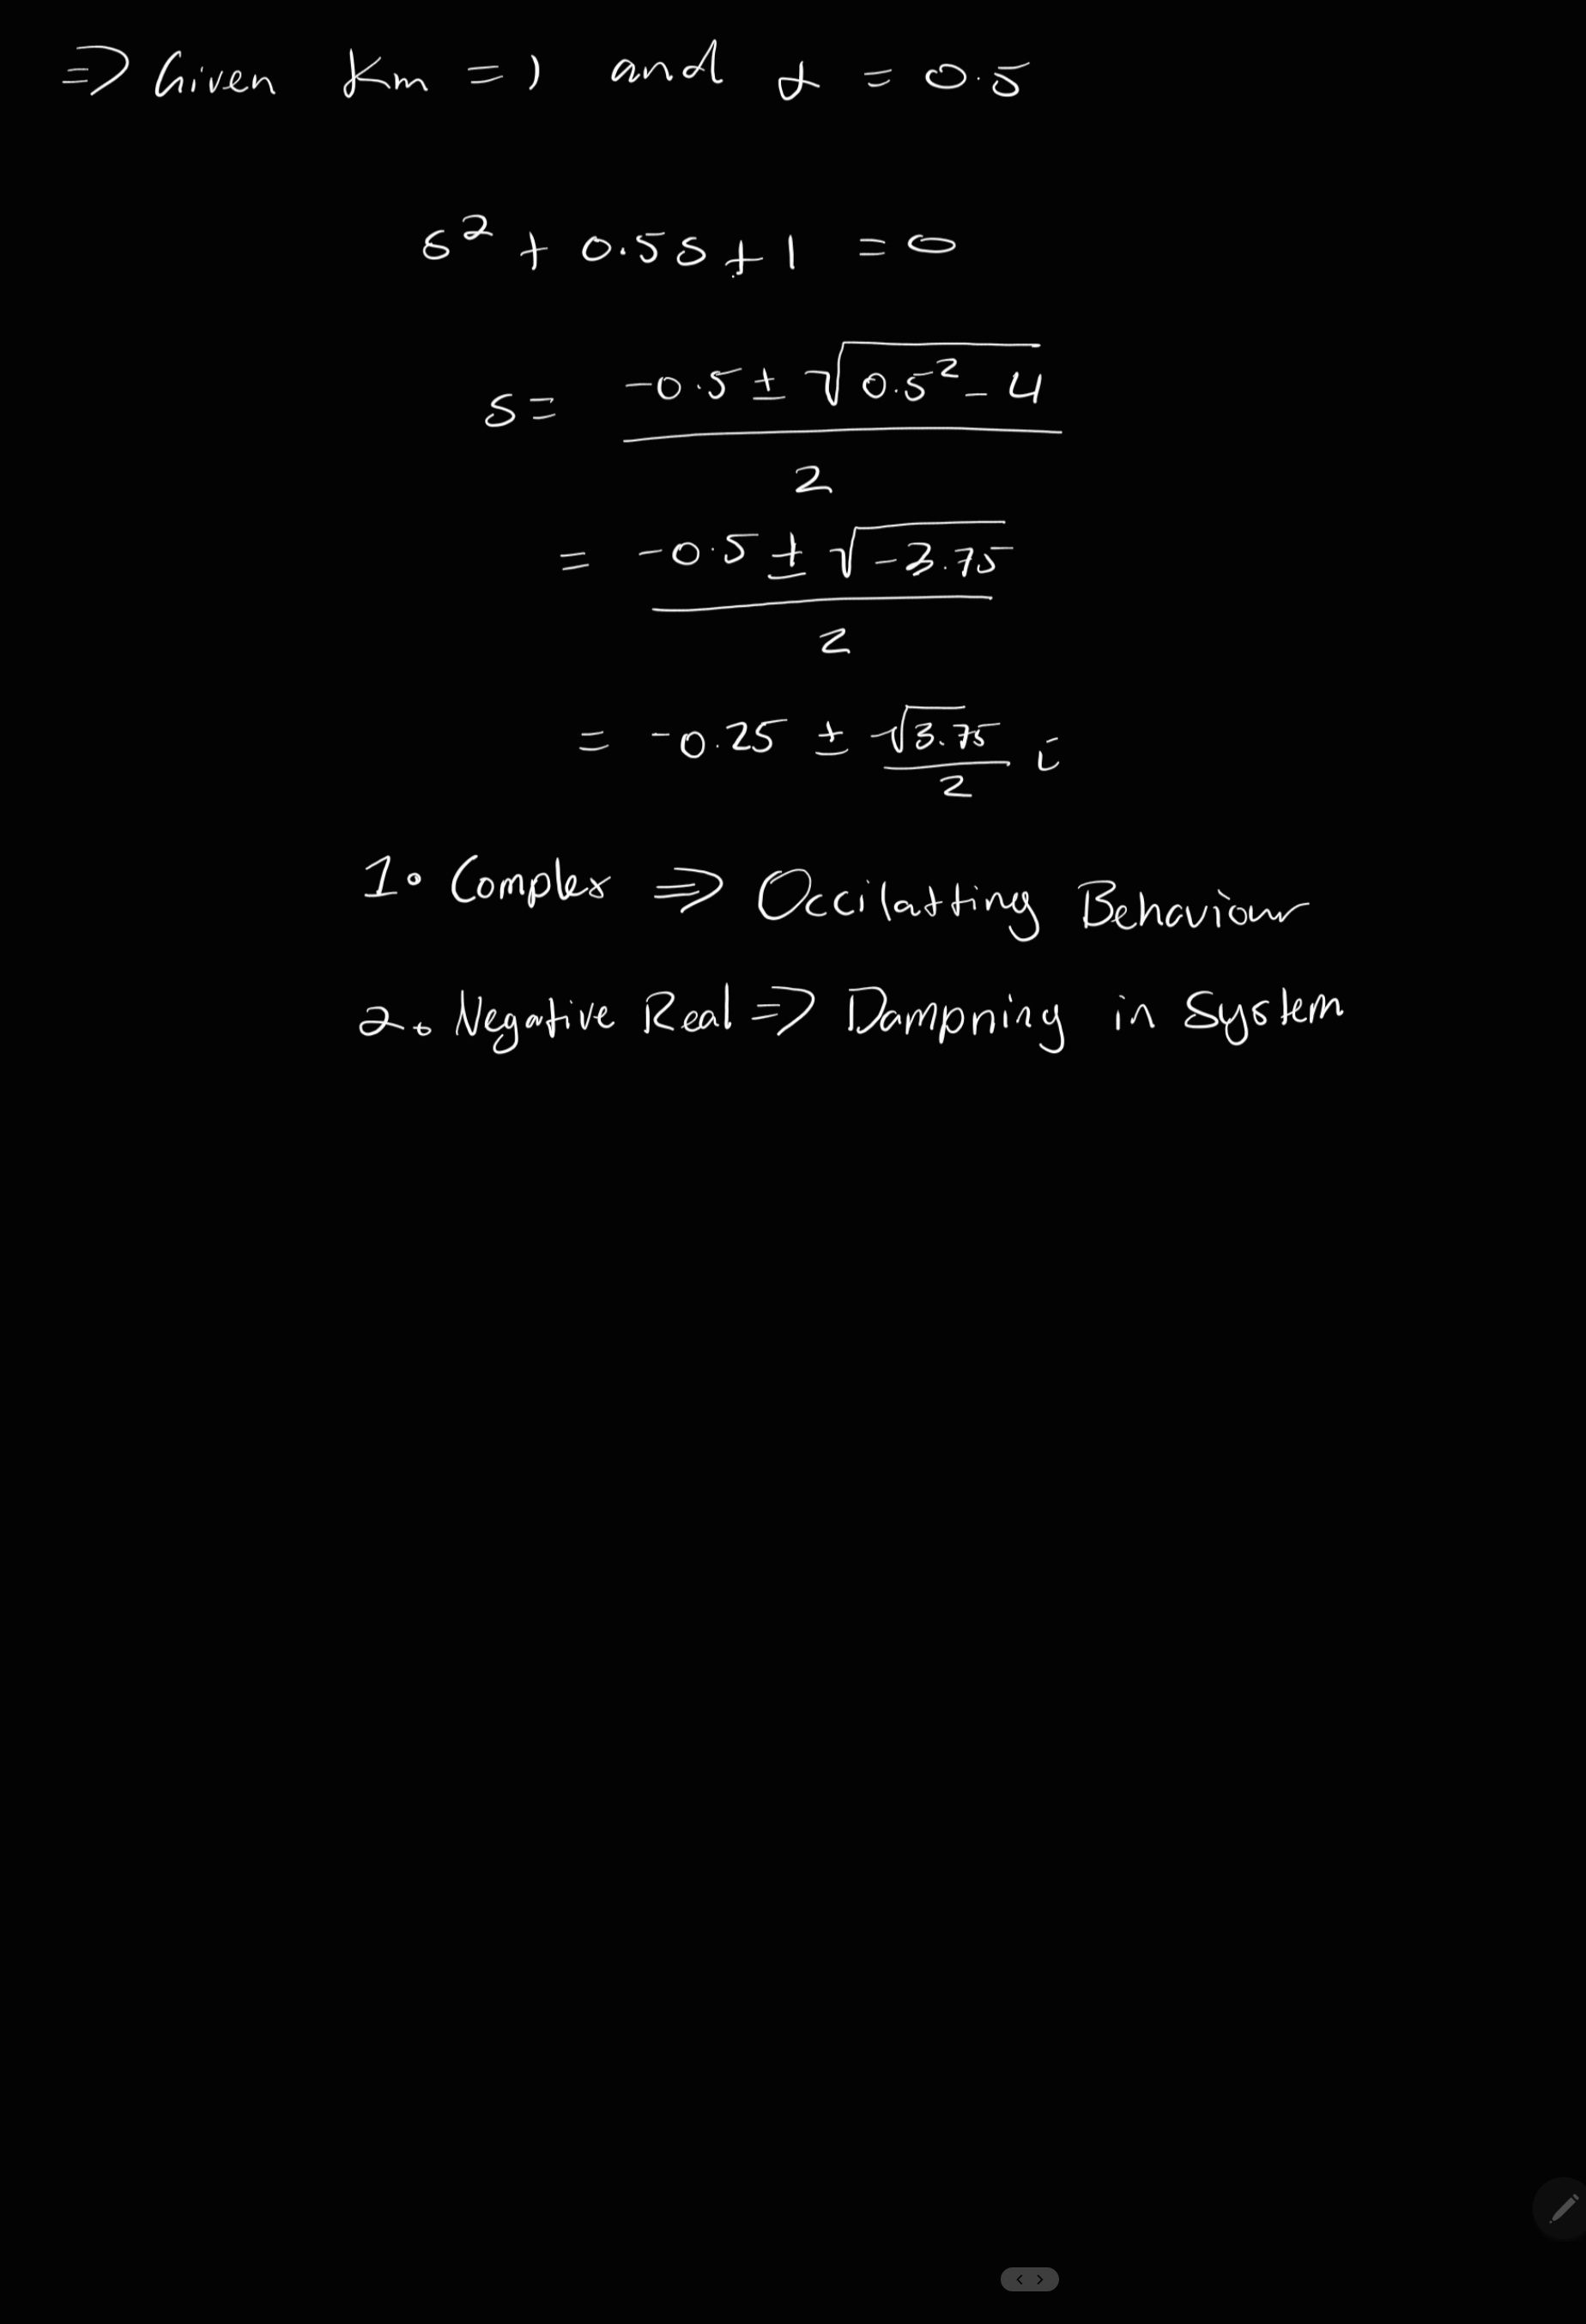 ⇒ Given Km = 1 and α = 0.5
s² + 0.5s + 1 = 0
s = (-0.5 ± √(0.5² - 4)) / 2
= (-0.5 ± √(-3.75)) / 2
= -0.25 ± (√3.75 / 2) i
1. Complex ⇒ Occilatting Behaviour
2. Negative Real ⇒ Dampning in System